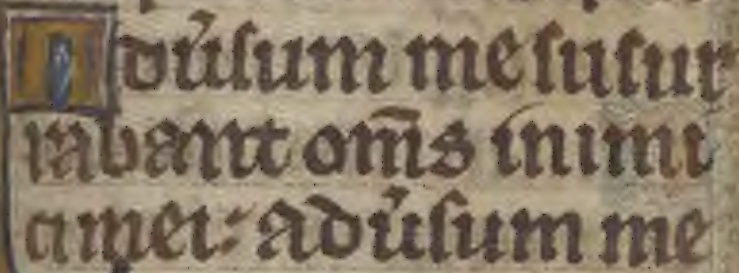 Adũsum me susur
rabant om̃s inimi
ci mei: adũsum me